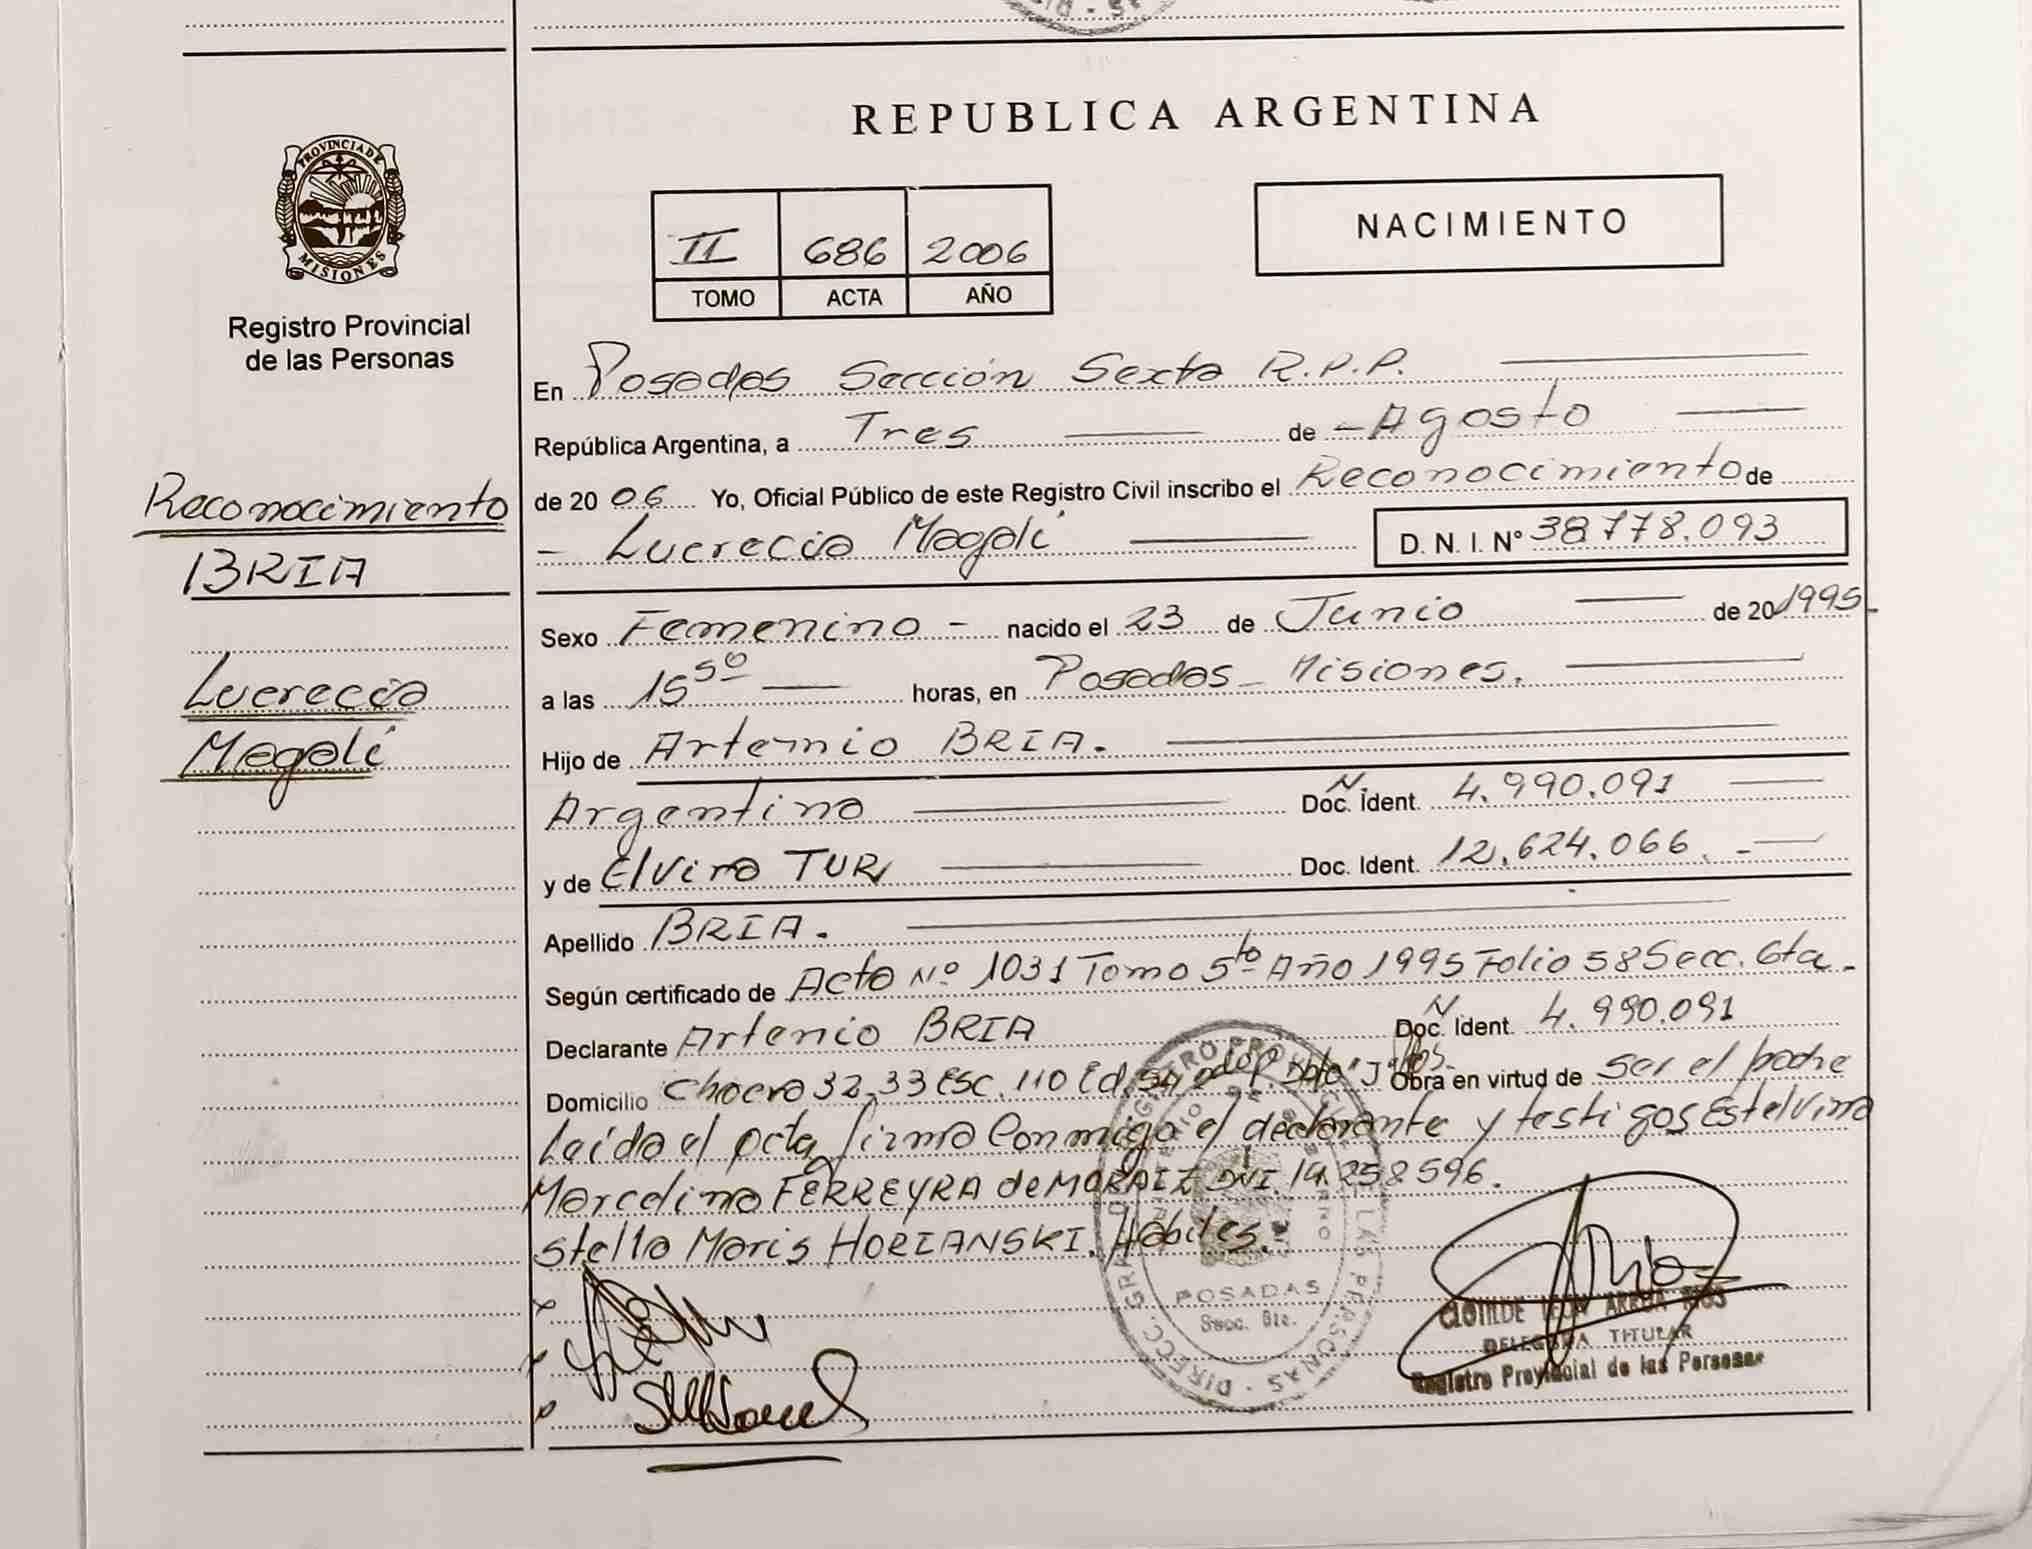 PROVINCIA DE
MISIONES
Registro Provincial
de las Personas
Reconocimiento
BRIA
Lucrecia
Magalí
REPUBLICA ARGENTINA
II 686 2006
TOMO ACTA AÑO
NACIMIENTO
En Posadas Sección Sexta R.P.P.
República Argentina, a Tres de - Agosto
de 2006 Yo, Oficial Público de este Registro Civil inscribo el Reconocimiento de
- Lucrecia Magalí D. N. I. Nº 38778.093
Sexo Femenino - nacido el 23 de Junio de 20 1995.
a las 15 50 horas, en Posadas - Misiones.
Hijo de Artemio BRIA.
Argentino Doc. Ident. Nº 4.990.091
y de Elvira TUR Doc. Ident. 12.624.066. -
Apellido BRIA.
Según certificado de Acta Nº 1031 Tomo 5to Año 1995 Folio 58 Secc. 6ta -
Declarante Artemio BRIA Doc. Ident. Nº 4.990.091
Domicilio Chacra 32-33 Esc. 110 Ed. Dpto "J" Obra en virtud de ser el padre
Leída el acta firma Conmigo el declarante y testigos Estelvina
Marcelina FERREYRA de MORAIZ DNI. 14.258596.
Stella Maris HORIANSKI. Hábiles.
POSADAS
Secc. 6ta.
CLOTILDE
DELEGADA TITULAR
Registro Provincial de las Personas